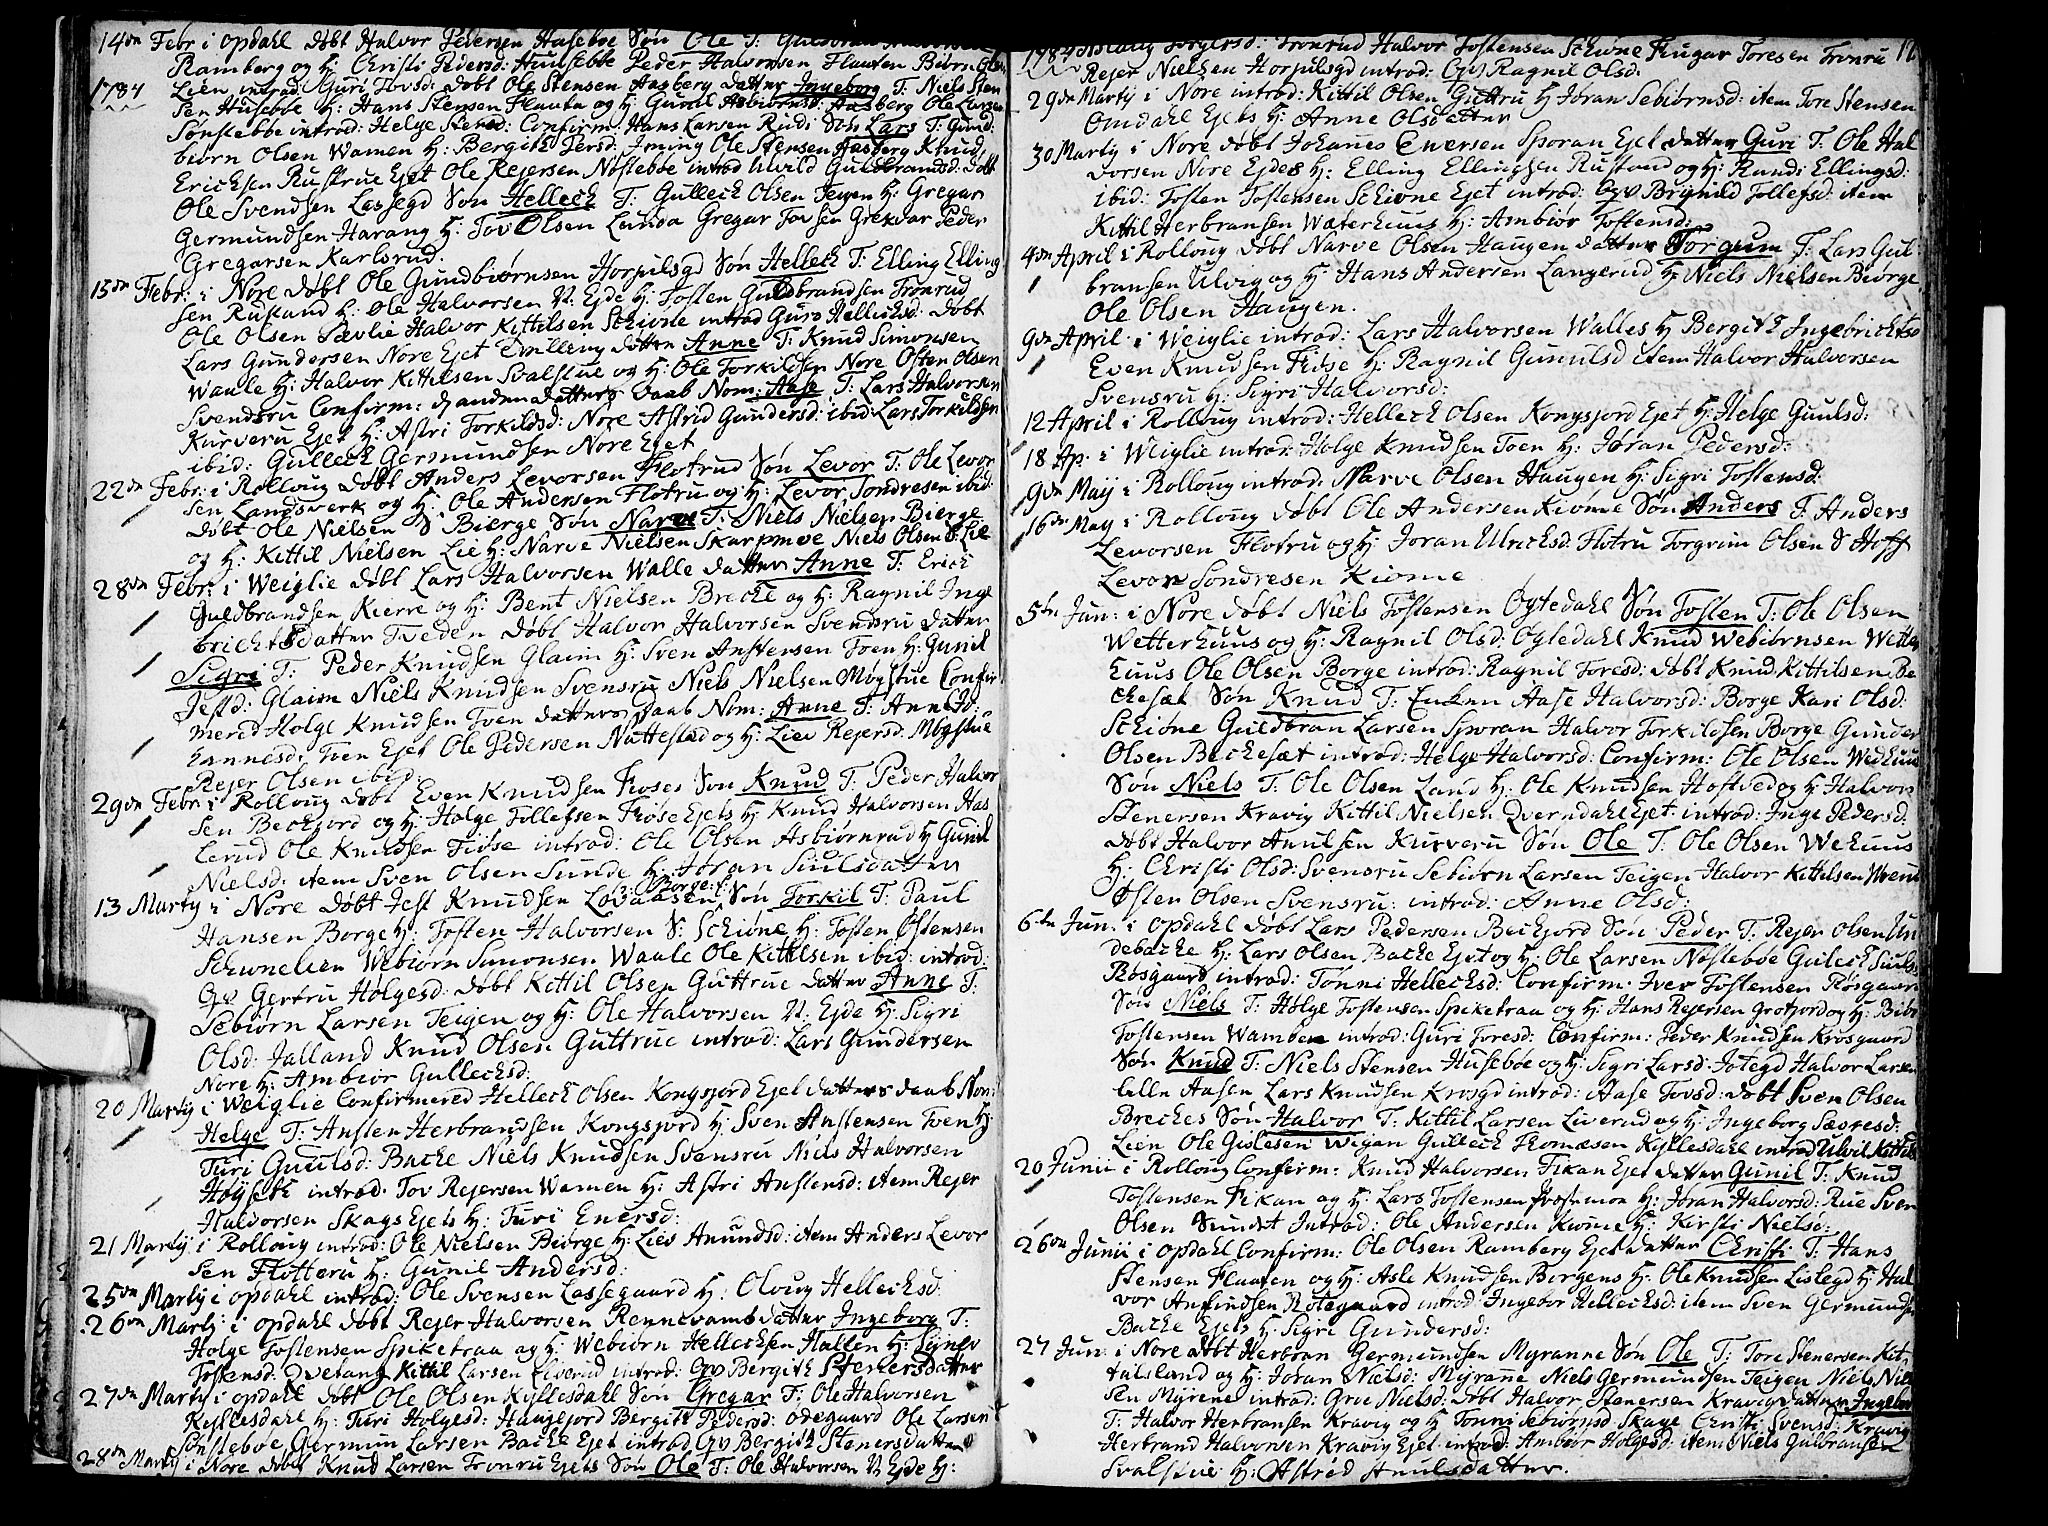 14de Febr i Opdahl døbt Halvor Pedersen Huseboe Søn Ole T:
Ramberg og H: Christi Pedersd: Huusebøe Peder Halvorsen Flaaten Biørn
1784
Lien introd: Guri Tovsd: døbt Ole Stensen Aasberg datter Ingeborg T: Niels Sten
sen Husebøe H: Hans Stensen Flaata og H: Gunil Asbiørnsd: Aasberg Ole Larsen
Sønstebøe introd: Helge Stensd: Confirm: Hans Larsen Ruds Søn Lars T: Gund:
biørn Olsen Wamen H: Bergith Persd: Iming Ole Stensen Aasberg Knud
Ericksen Rustrue Ejet Ole Rejersen Nøstebøe introd Ulvild Guldbrandsd: døbt
Ole Svendsen Lassegd Søn Helleck T: Gulleck Olsen Teigen H: Gregar
Germundsen Harang H: Tov Olsen Lunda Gregar Tovsen Grekvar Peder
Gregarsen Karlsrud.
15de Febr: i Nore døbt Ole Gundbiørnsen Horpulsgd Søn Helleck T: Elling Elling
sen Rustand H: Ole Halvorsen N: Ejde H: Tosten Guldbrandsen Tronrud
Ole Olsen Sævlie Halvor Kittilsen Schiøne introd Guro Hellichsd: døbt
Lars Gundersen Nore Ejet Tvilling datter Anne T: Knud Simonsen
Waale H: Halvor Kittilsen Svalstue og H: Ole Torkildsen Nore Østen Olsen
Svendsru Confirm: d anden datters daab Nom: Aase T: Lars Halvorsen
Kurveru Ejet H: Astri Torkildsd: Nore Astrid Gundersd: ibid: Lars Torkildsen
ibid: Gulleck Germundsen Nore Ejet
22de Febr: i Rolloug døbt Anders Levorsen Flotrud Søn Levor T: Ole Levor
sen Landswerk og H: Ole Andersen Flotru og H: Levor Sondresen ibid:
døbt Ole Nielsen S: Bierge Søn Narve T: Niels Nielsen Bierge
og H: Kittil Nielsen Lie H: Narve Nielsen Skarpmoe Niels Olsen S: Lie
28de Febr: i Weiglie døbt Lars Halvorsen Walle datter Anne T: Erich
Guldbrandsen Kierre og H: Bent Nielsen Brecke og H: Ragnil Inge
brichtsdatter Tveden døbt Halvor Halvorsen Svendsru datter
Sigri T: Peder Knudsen Glaim H: Sven Anstensen Toen H: Gunil
Jestd: Glaim Niels Knudsen Svensru Niels Nielsen Møgstue Confir
mered Holge Knudsen Toen datters daab Nom: Anne T: Anne Jo:
hannesd: Toen Ejet Ole Pedersen Nattestad og H: Liev Rejersd: Mogstue
Rejer Olsen ibid:
29de Febr i Rolloug døbt Even Knudsen Fioses Søn Knud T: Peder Halvor
sen Beckjord og H: Holge Tollefsen Fiøse Ejets H: Knud Halvorsen Has
lerud Ole Knudsen Fiøse introd: Ole Olsen Asbiørnrud H Gunil
Nielsd: item Sven Olsen Sunde H: Jøran Siulsdatter
13 Martj i Nore døbt Jest Knudsen Lovaasen :/: Borge :/: Søn Torkil T: Paul
Hansen Borge H: Tosten Halvorsen S: Schiøne H: Tosten Østensen
Schionelien Webiørn Simonsen Waale Ole Kittilsen ibid: introd:
Qv Gertru Holgesd: døbt Kittil Olsen Guttrue datter Anne T:
Sebiørn Larsen Teigen og H: Ole Halvorsen N: Ejde H: Sigri
Olsd: Jalland Knud Olsen Guttrue introd: Lars Gundersen
Nore H: Ambiør Gullecksd:
20 Martj i Weiglie Confirmered Helleck Olsen Kongsjord Ejet datters daab Nom:
Helge T: Ansten Herbrandsen Kongsjord H: Sven Anstensen Toen H:
Turi Guulsd: Backe Niels Knudsen Svensru Niels Halvorsen
Høyseth introd: Tov Rejersen Wamen H: Astri Anstensd: item Rejer
Halvorsen Skags Ejets H: Turi Enersd:
21 Martj i Rolloug introd: Ole Nielsen Biørge H: Liev Amundsd: item Anders Levor
sen Flotteru H: Gunil Andersd:
25de Martj i Opdahl introd: Ole Svensen Lassegaard H: Oloug Hellecksd
26de Martj i Opdahl døbt Rejer Halvorsen Rennevams datter Ingeborg T:
Holge Tostensen Spiketraa og H: Webiørn Hellecksen Hallen H: Synev
Tostensd: Tvetang Kittil Larsen Liverud introd: Qv Bergith Stenersdatter
27de Martj i Opdahl døbt Ole Olsen Kyllesdahl Søn Gregar T: Ole Halvorsen
Kyllesdahl H: Turi Holgesd: Haugejord Bergith Pedersd: Ødegaard Ole Larsen
Sønstebøe Germun Larsen Backe Ejet introd Qv Bergith Stenersdatter
28de Martj i Nore døbt Knud Larsen Tronru Ejets Søn Ole T: Ole Halvorsen N: Ejde H:
1784 Aslaug Torgersd: Tronrud Halvor Tostensen Schiøne Haugar Toresen Tronru 17
Rejer Nielsen Horpulsgd introd: Qv Ragnil Olsd.
29de Martj i Nore introd: Kittil Olsen Guttru H Jøran Sebiørnsd: item Tore Stensen
Omdahl Ejets H: Anne Olsdatter
30 Martj i Nore døbt Johannes Enersen Sporan Ejet datter Guri T: Ole Hal
vorsen Nore Ejdes H: Elling Ellingsen Rustand og H: Randi Ellingsd:
ibid: Tosten Tostensen Schiøne Ejet introd: Qv Brynild Tollefsd: item
Kittil Herbransen Wæterhuus H: Ambiør Tostensd:
4de April i Rolloug døbt Narve Olsen Haugen datter Torgum T: Lars Gul:
bransen Ulvig og H: Hans Andersen Langerud H: Niels Nielsen Biørge
Ole Olsen Haugen.
9de April i Weiglie introd: Lars Halvorsen Walles H Bergith Ingebrichtsd
Even Knudsen Fiøse H: Ragnil Gunulsd item Halvor Halvorsen
Svensru H: Sigri Halvorsd:
12 April i Rolloug introd: Helleck Olsen Kongsjord Ejet H: Helge Guulsd:
18 Ap: i Weiglie introd: Holge Knudsen Toen H: Jøran Pedersd:
9de Maij i Rolloug introd: Narve Olsen Haugen H: Sigri Tostensd:
16de May i Rolloug døbt Ole Andersen Kiøme Søn Anders T: Anders
Levorsen Flotru og H Joran Ulricksd: Flotru Torgrim Olsen S Hoff
Levor Sondresen Kiome
5te Jun: i Nore døbt Niels Tostensen Øgtedahl Søn Tosten T: Ole Olsen
Wetterhuus og H: Ragnil Olsd: Øgtedahl Knud Webiørnsen Wetter
huus Ole Olsen Borge introd: Ragnil Toresd: døbt Knud Kittilsen Be
chesæt Søn Knud T: Enken Aase Halvorsd: Borge Kari Olsd:
Schiøne Guldbran Larsen Sporan Halvor Torkildsen Borge Gunder
Olsen Beckesæt introd: Helge Halvorsd: Confirm: Ole Olsen Wedhuus
Søn Niels T: Ole Olsen Land H: Ole Knudsen Hoftved og H: Halvor
Stenersen Kravig Kittil Nielsen Qverndahl Ejet introd: Inge Pedersd.
døbt Halvor Anulsen Kurveru Søn Ole T: Ole Olsen Wehuus
H: Christi Olsd: Svensru Sebiørn Larsen Teigen Halvor Kittilsen
Østen Olsen Svensru: introd: Anne Olsd:
6te Jun: i Opdahl døbt Lars Pedersen Beckjord Søn Peder T: Rejer Olsen Un
debacke H: Lars Olsen Backe Ejet og H: Ole Larsen Nøstebøe Gulleck Siuls:
Røsgaard introd: Tønni Hellecksd: Confirm: Iver Tostensen Røsgaard
Søn Niels T: Holge Tostensen Spiketraa og H: Hans Rejersen Grotjord og H:
Tostensen Wamben introd: Guri Toresd: Confirm: Peder Knudsen Krosgaard
Søn Knud T: Niels Stensen Husebøe og H: Sigri Larsd: Jotegd Halvor Larsen
Lille Aasen Lars Knudsen Krosgd introd: Aase Tovsd: døbt Sven Olsen
Breches Søn Halvor T: Kittil Larsen Liverud og H: Ingeborg Sæveresd:
Lien Ole Gislesen Wigan Gulleck Thomæsen Kyllesdahl introd Ulvil Kittilsd
20 Junii i Rolloug Confirm: Knud Halvorsen Fikan Ejet datter Gunil T: Knud
Tostensen Fikan og H: Lars Tostensen H: Jøran Halvorsd: Rue Sven
Olsen Sundet Introd: Ole Andersen Kiome H: Kirsti Nielsd:
26de Junii i Opdahl Confirm: Ole Olsen Ramberg Ejet datter Christi T: Hans
Stensen Flaaten og H: Asle Knudsen Borgens H: Ole Knudsen Lislegd H: Hal
vor Anfindsen Rotegaard introd: Ingebor Hellecksd: item Sven Germundsen
Backe Ejets H: Sigri Gundersd:
27 Jun: i Nore døbt Herbran Germundsen Myranne Søn Ole T: Tore Stenersen Kit
talsland og H: Joran Nielsd: Myrane Niels Germundsen Teigen Niels Niel
sen Myrene introd: Gru Nielsd: døbt Halvor Stenersen Kravig datter Ingebor
T: Halvor Herbransen Kravig og H Tonni Sebiørnsd Skage Christi Svensd: Kravig
Herbrand Halvorsen Kravig Ejet introd: Ambiør Holgesd: item Niels Gulbransen
Svalstue H: Astrød Anulsdatter.